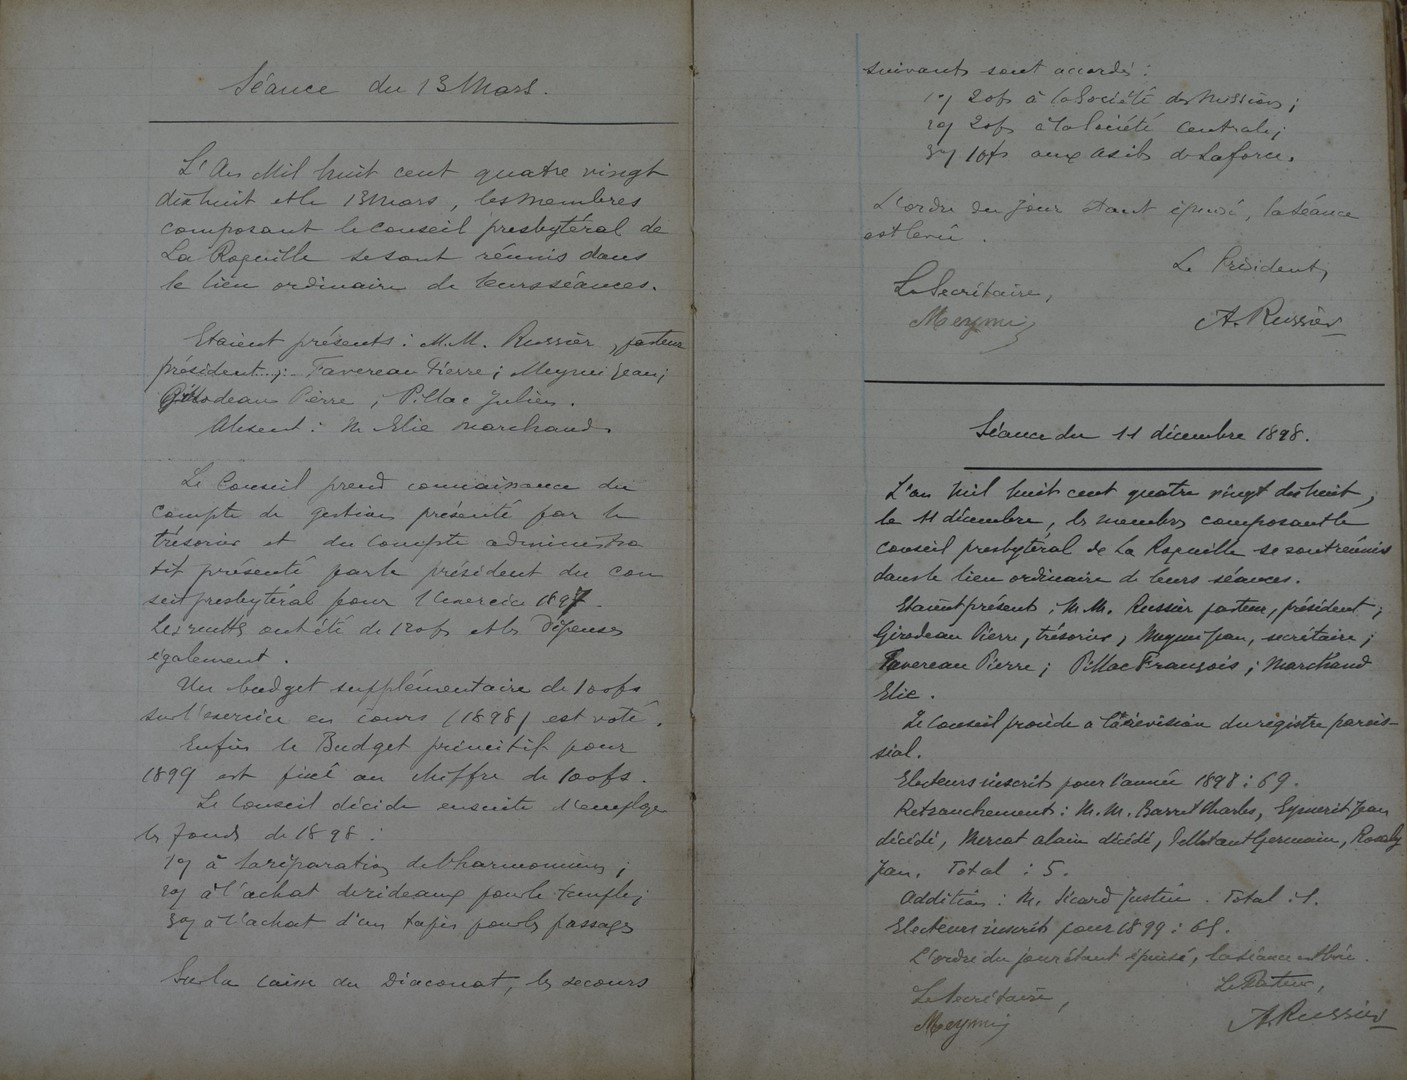 Séance du 13 Mars.
L'An Mil huit cent quatre vingt
dix huit et le 13 Mars, les membres
composant le Conseil presbytéral de
La Roquille se sont réunis dans
le lieu ordinaire de leurs séances.
Etaient présents : M.M. Russier, pasteur
président ; Favereau Pierre ; Meymi Jean ;
Girodeau Pierre ; Pillac Julien.
Absent : M Elie Marchand
Le Conseil prend connaissance du
compte de gestion présenté par le
trésorier et du compte administra
tif présenté par le président du con
seil presbytéral pour l'exercice 1897.
Les recettes ont été de 120fs et les dépenses
également.
Un budget supplémentaire de 100fs
sur l'exercice en cours (1898) est voté.
Enfin le Budget primitif pour
1899 est fixé au chiffre de 100fs.
Le Conseil décide ensuite d'employer
les fonds de 1898 :
1º) à la réparation de l'harmonium ;
2º) à l'achat de rideaux pour le temple ;
3º) à l'achat d'un tapis pour les passages
Sur la caisse du Diaconat, les secours
suivants sont accordés :
1º) 20fs à la Société des Missions ;
2º) 20fs à la Société Centrale ;
3º) 10fs aux Asiles de Laforce.
L'ordre du jour étant épuisé, la séance
est levée.
Le Président,
Le Secrétaire,
Meymi
A. Russier
Séance du 11 décembre 1898.
L'an Mil huit cent quatre vingt dix huit,
le 11 décembre, les membres composant le
Conseil presbytéral de La Roquille se sont réunis
dans le lieu ordinaire de leurs séances.
Etaient présents : M.M. Russier pasteur, président ;
Girodeau Pierre, trésorier, Meymi Jean, secrétaire ;
Favereau Pierre ; Pillac François ; Marchand
Elie.
Le Conseil procède à la révision du registre parois-
sial.
Electeurs inscrits pour l'année 1898 : 69.
Retranchements : M.M. Barret Charles, Eymerit Jean
décédé, Mercat Alain décédé, Germain,
Jean. Total : 5.
Addition : M. Sicard Justin. Total : 1.
Electeurs inscrits pour 1899 : 65.
L'ordre du jour étant épuisé, la séance est levée.
Le Pasteur,
Le Secrétaire,
Meymi
A. Russier